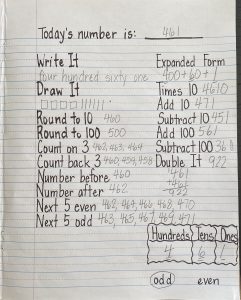 Today's number is: 461
Write It
four hundred sixty one
Draw It
Round to 10 460
Round to 100 500
Count on 3 462, 463, 464
Count back 3 460, 459, 458
Number before 460
Number after 462
Next 5 even 462, 464, 466, 468, 470
Next 5 odd 463, 465, 467, 469, 471
Expanded Form
400+60+1
Times 10 4610
Add 10 471
Subtract 10 451
Add 100 561
Subtract 100 361
Double It 922
461
+461
922
Hundreds Tens Ones
4 6 1
odd even